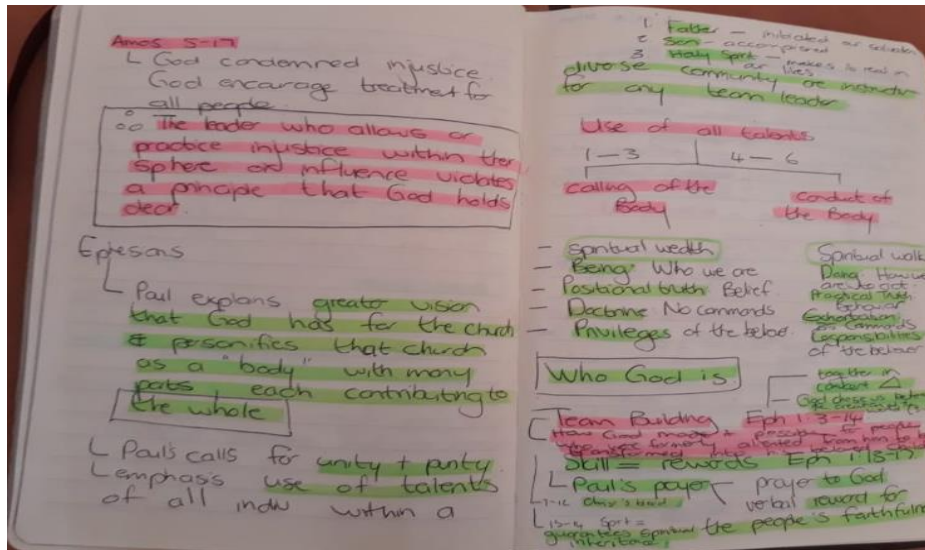 Amos 5-17
God condemned injustice.
God encourage treatment for
all people.
The leader who allows or
practice injustice within ther
sphere on influence violates
a principle that God holds
dear
Ephesans
Paul explains greater vision
that God has for the church
& personifies that church
as a "body" with many
parts each contributing to
the whole
Paul's calls for unity + purity
emphasis use of talents
of all indiv within a
1 Father — initiated our salvation
2 Son - accomplished
3 Holy Spirit — makes it real in
our lives
diverse community are instructive
for any team leader
Use of all talents
1-3 4-6
calling of the
Body
conduct of
the Body
- Spiritual wealth
- Being: Who we are
- Positional truth Belief
- Doctrine No commands
- Privileges of the believer
Spiritual walk
Doing: How we
are to act
Practical Truth
Behavior
Exhortation
Commands
Responsibilities
of the believer
Who God is
together in
God chooses
Team Building Eph 1-3-14
How God made + possible people
who were formerly alienated from him to be
transformed into his
Skill = rewards Eph 1:15-17
Paul's prayer prayer to God
verbal reward for
the people's faithfulne
7-12
13-14 Sprt =
guarantees spiritual
inheritance